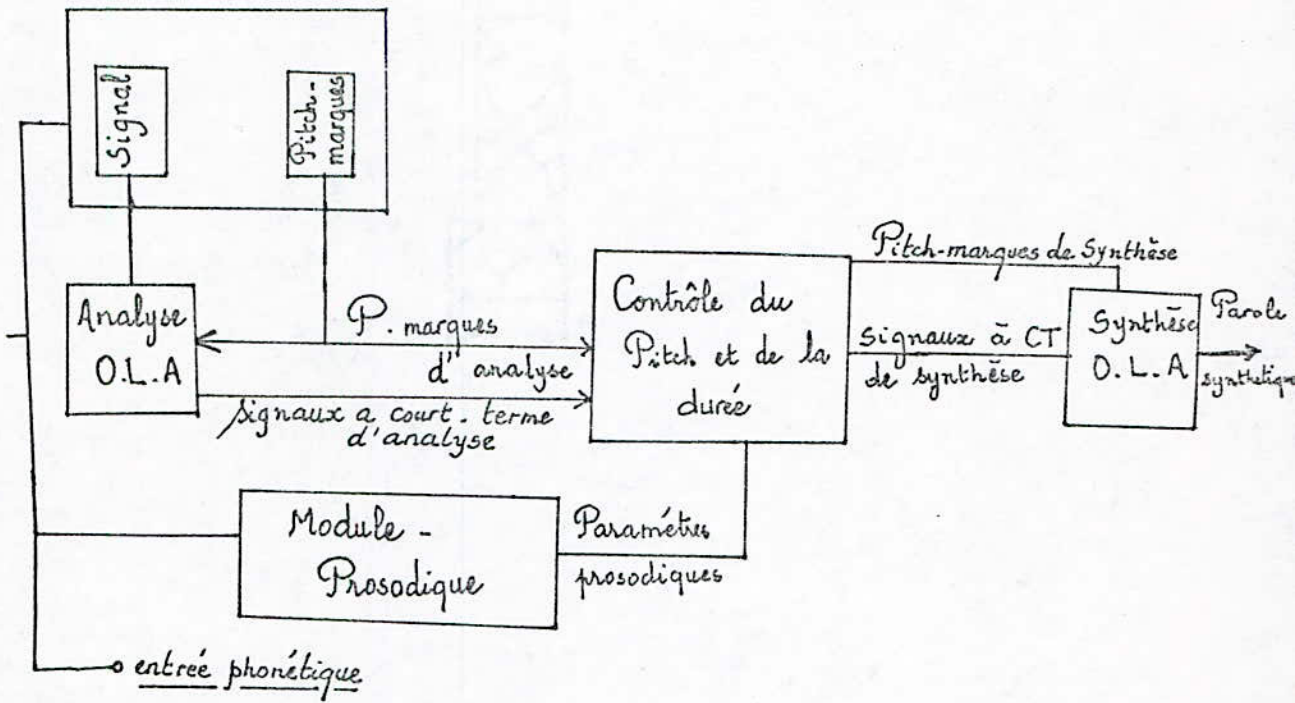 Signal
Pitch-
marques
Analyse
O.L.A
P. marques
d'analyse
signaux a court-terme
d'analyse
Contrôle du
Pitch et de la
durée
Pitch-marques de Synthèse
signaux à CT
de synthèse
Synthèse
O.L.A
Parole
synthetique
Module -
Prosodique
Paramétres
prosodiques
entrée phonétique